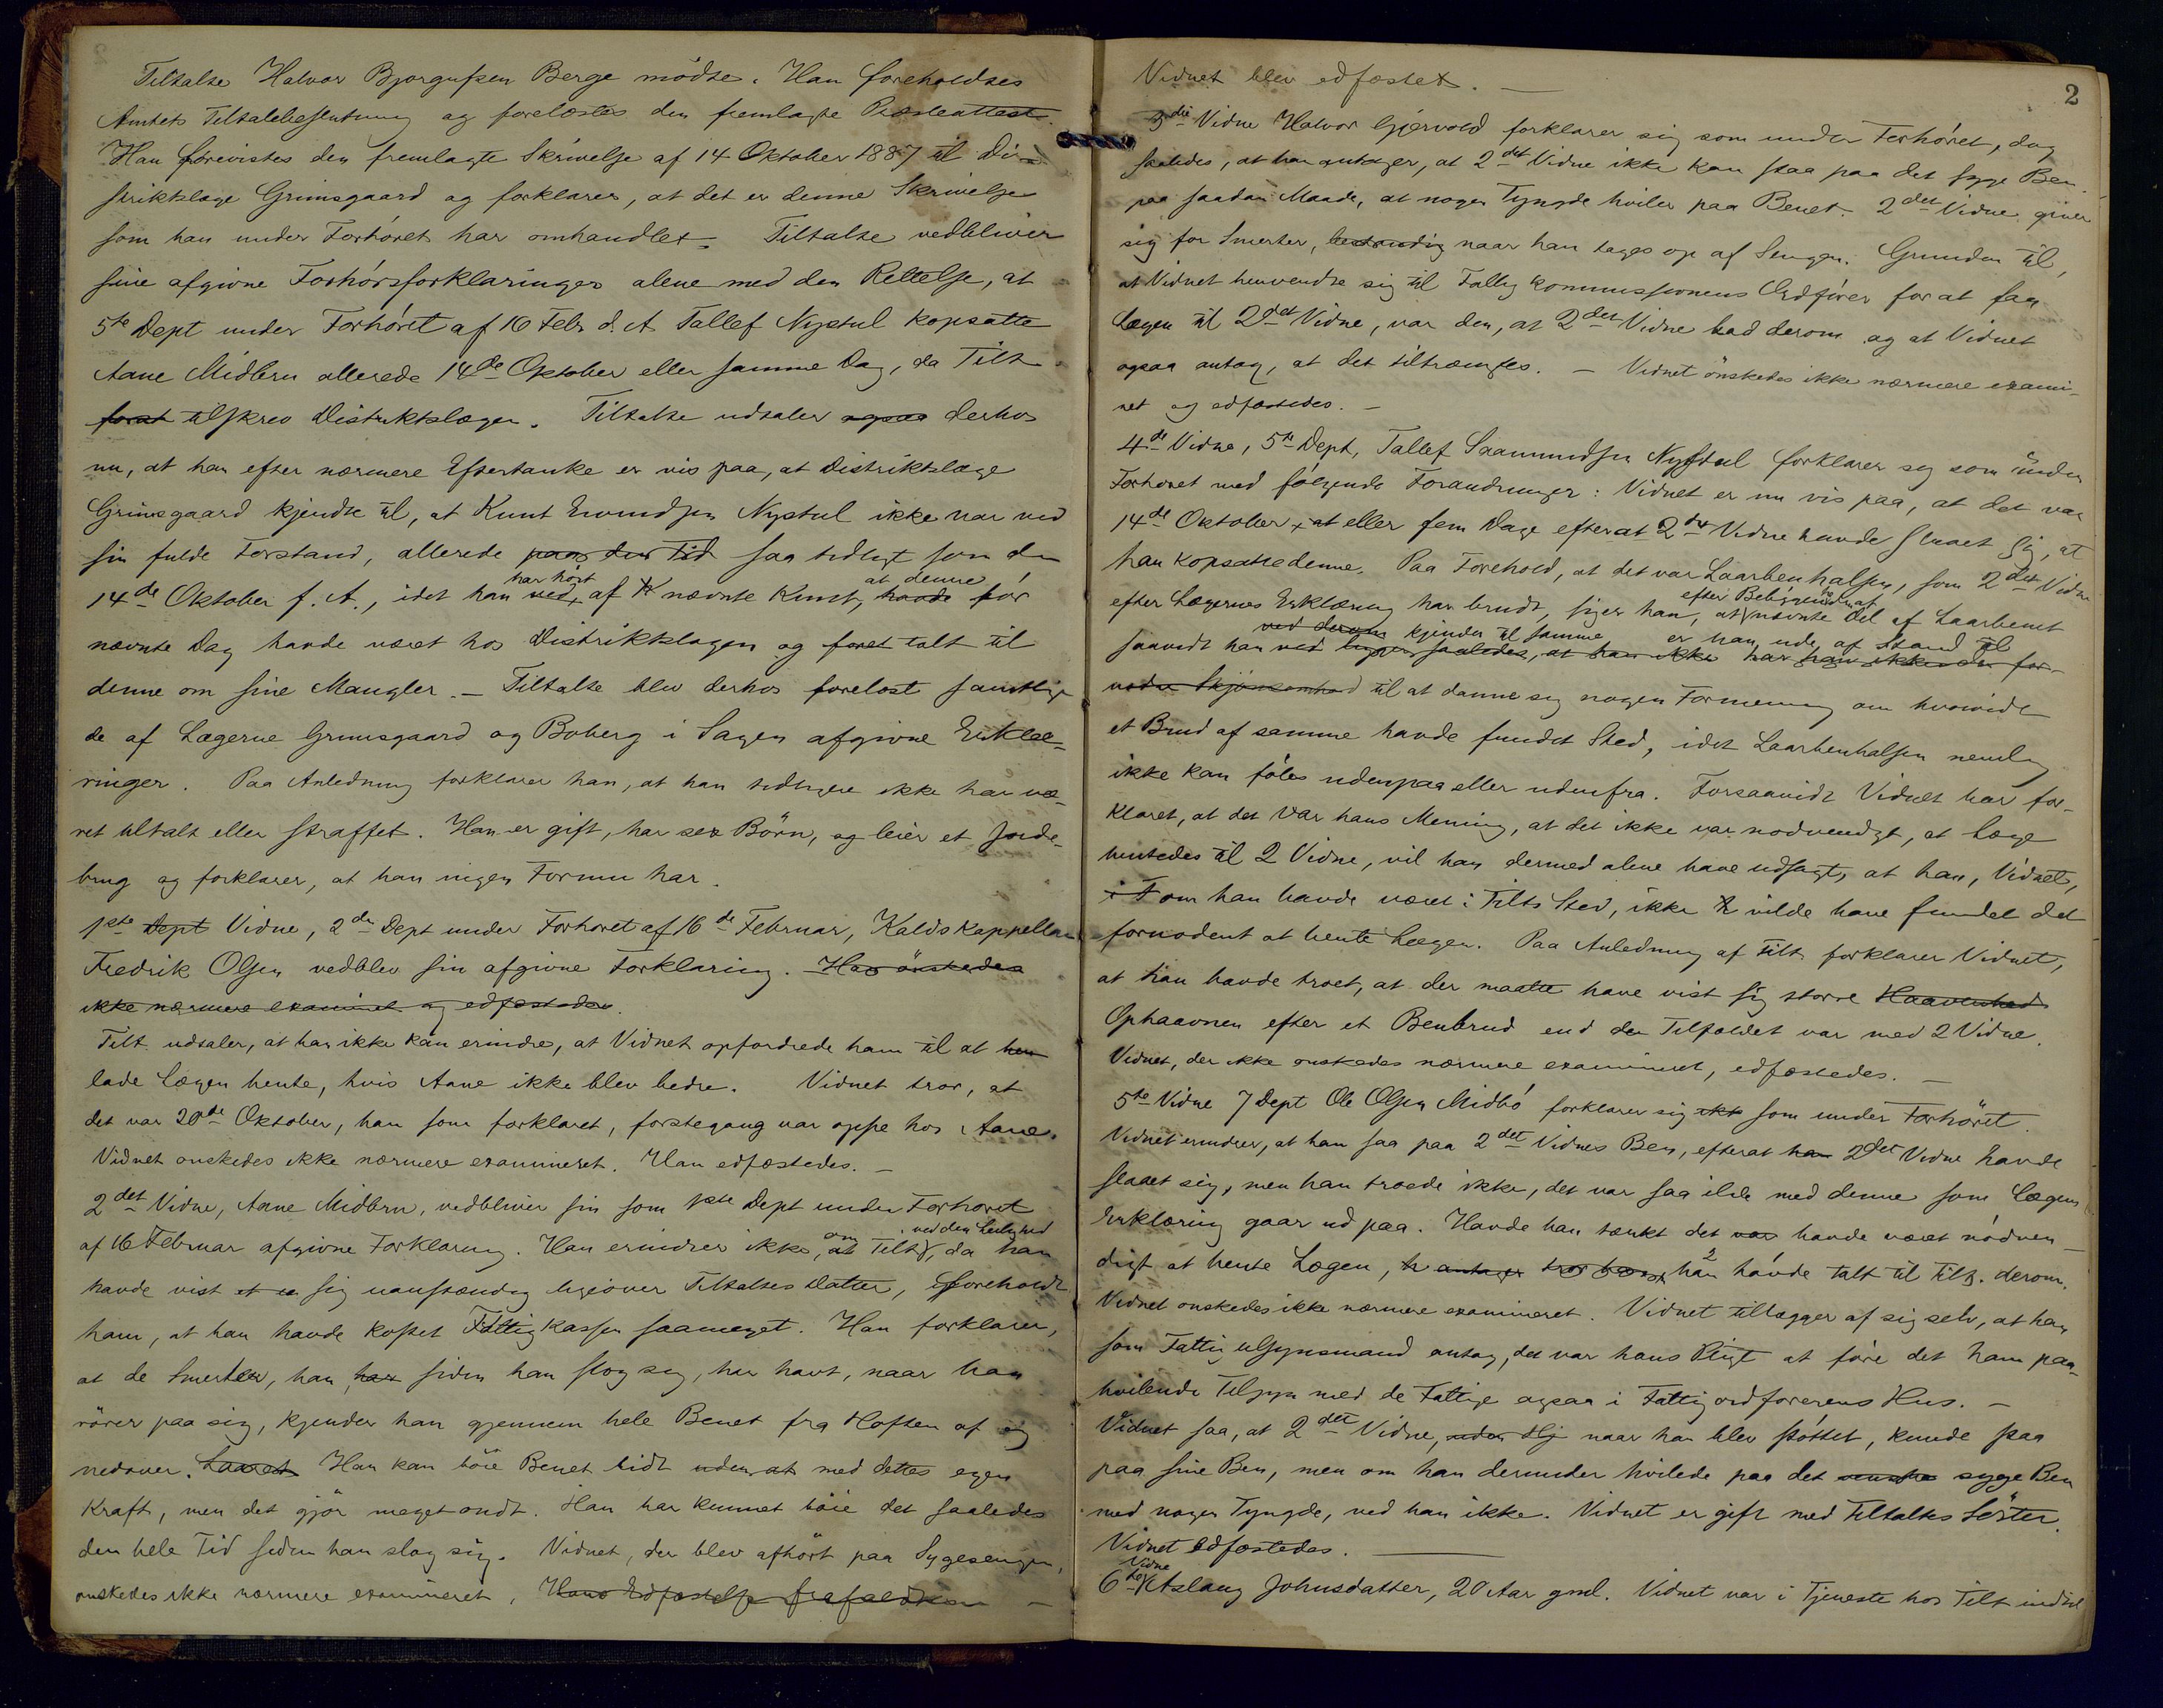 Tiltalte Halvor Bjorgufsen Berge mödte. Han foreholdtes
Amtets Tiltalebeslutning og forelæstes den fremlagte Præsteattest.
Han forevistes den fremlagte Skrivelse af 14 Oktober 1887 til Di-
striktslæge Grimsgaard og forklarer, at det er denne Skrivelse
som han under Forhöret har omhandlet. Tiltalte vedbliver
sine afgivne Forhörsforklaringer alene med den Rettelse, at
5te Dept under Forhöret af 16 Febr d. A. Tallef Nystul kopsatte
Aane Midbru allerede 14de Oktober eller samme Dag, da Tilt
forst tilskrev Distriktslægen. Tiltalte udtaler ogsaa derhos
nu, at han efter nærmere Eftertanke er vis paa, at Distriktslæge
Grimsgaard kjendte til, at Knut Eivindsen Nystul ikke var ved
sin fulde Forstand, allerede paa den Tid saa tidligt som den
14de Oktober f. A., idet han ved har hört af K nævnte Knut, havde at denne för
nævnte Dag havde været hos Distriktslægen og foret talt til
denne om sine Mangler. — Tiltalte blev derhos forelæst samtlige
de af Lægerne Grimsgaard og Boberg i Sagen afgivne Erklæ-
ringer. Paa Anledning forklarer han, at han tidligere ikke har væ-
ret tiltalt eller straffet. Han er gift, har sex Börn, og leier et Jorde-
brug og forklarer, at han ingen Formue har.
1ste Dept Vidne, 2den Dept under Forhöret af 16de Februar, Kaldskappellan
Fredrik Olsen vedblev sin afgivne Forklaring. Han önskedes
ikke nærmere examinet og edfæstedes.
Tilt. udtaler, at han ikke kan erindre, at Vidnet opfordrede ham til at hen
lade Lægen hente, hvis Aane ikke blev bedre. Vidnet tror, at
det var 20de Oktober, han som forklaret, förstegang var oppe hos Aane.
Vidnet önskedes ikke nærmere examineret. Han edfæstedes. —
2det Vidne, Aane Midbru, vedbliver sin som 1ste Dept under Forhöret
af 16 Februar afgivne Forklaring. Han erindrer ikke, at om Tilt ved den Leilighed, da han
havde vist et u sig uanstændig ligeover Tiltaltes Datter, foreholdt
ham, at han havde kostet Fattigkassen saameget. Han forklarer,
at de Smerter, han har siden han slog sig, har havt, naar han
rörer paa sig, kjender han gjennem hele Benet fra Hoften af og
nedover. Laaret Han kan böie Benet lidt uden at med dettes egen
Kraft, men det gjör meget ondt. Han har kunnet böie det saaledes
den hele Tid siden han slog sig. Vidnet, der blev afhört paa Sygesengen,
önskedes ikke nærmere examineret, Hans Edfæstelse frafaldtes —
2
Vidnet blev edfæstet. —
3die Vidne Halvor Gjervold forklarer sig som under Forhöret, dog
saaledes, at han antager, at 2det Vidne ikke kan staa paa det syge Ben
paa saadan Maade, at nogen Tyngde hviler paa Benet. 2det Vidne giver
sig for Smerter, bestandig naar han tages op af Sengen. Grunden til,
at Vidnet henvendte sig til Fattigkommissionens Ordförer for at faa
Lægen til 2det Vidne, var den, at 2det Vidne bad derom og at Vidnet
ogsaa antog, at det tiltrængtes. — Vidnet önskedes ikke nærmere exami-
net og edfæstedes. —
4de Vidne, 5te Dept, Tallef Saamundsen Nystul forklarer sig som under
Forhöret med fölgende Forandringer: Vidnet er nu vis paa, at det var
14de Oktober, at eller fem Dage efterat 2det Vidne havde slaaet sig, at
han kopsatte denne. Paa Forehold, at det var Laarbenhalsen, som 2det Vidne
efter Lægernes Erklæring har brudt, siger han, at nævnte Del af Laarbenet
saavidt han ved kjender til samme, er han ude af Stand til
til at danne sig nogen Formening om hvorvidt
et Brud af samme havde fundet Sted, idet Laarbenhalsen nemlig
ikke kan föles udenpaa eller udenfra. Forsaavidt Vidnet har for-
klaret, at det var hans Mening, at det ikke var nödvendigt, at Læge
hentedes til 2 Vidne, vil han dermed alene have udsagt, at han, Vidnet,
i T om han havde været i Tilts Sted, ikke h vilde have fundet det
fornödent at hente Lægen. Paa Anledning af Tilt forklarer Vidnet,
at han havde troet, at der maatte have vist sig större Haavenhed
Ophaavnen efter et Benbrud end der Tilfældet var med 2 Vidne.
Vidnet, der ikke önskedes nærmere examineret, edfæstedes. —
5te Vidne 7 Dept Ole Olsen Midbö forklarer sig ikke som under Forhöret.
Vidnet erindrer, at han saa paa 2det Vidnes Ben, efterat han 2det Vidne havde
slaaet sig, men han troede ikke, det var saa ilde med denne som Lægens
Erklæring gaar ud paa. Havde han tænkt det var havde været nödven-
digt at hente Lægen, h antager han havde talt til Tilt. derom.
Vidnet önskedes ikke nærmere examineret. Vidnet tillægger af sig selv, at han
som Fattigtilsynsmand antog, det var hans Pligt at före det ham paa-
hvilende Tilsyn med de Fattige ogsaa i Fattigordförerens Hus. —
Vidnet saa, at 2det Vidne, uden Hj naar han blev stöttet, kunde staa
paa sine Ben, men om han derunder hvilede paa det venstre syge Ben
med nogen Tyngde, ved han ikke. Vidnet er gift med Tiltaltes Söster.
Vidnet edfæstedes. —
6te Vidne Aslaug Johnsdatter, 20 Aar gml. Vidnet var i Tjeneste hos Tilt indtil